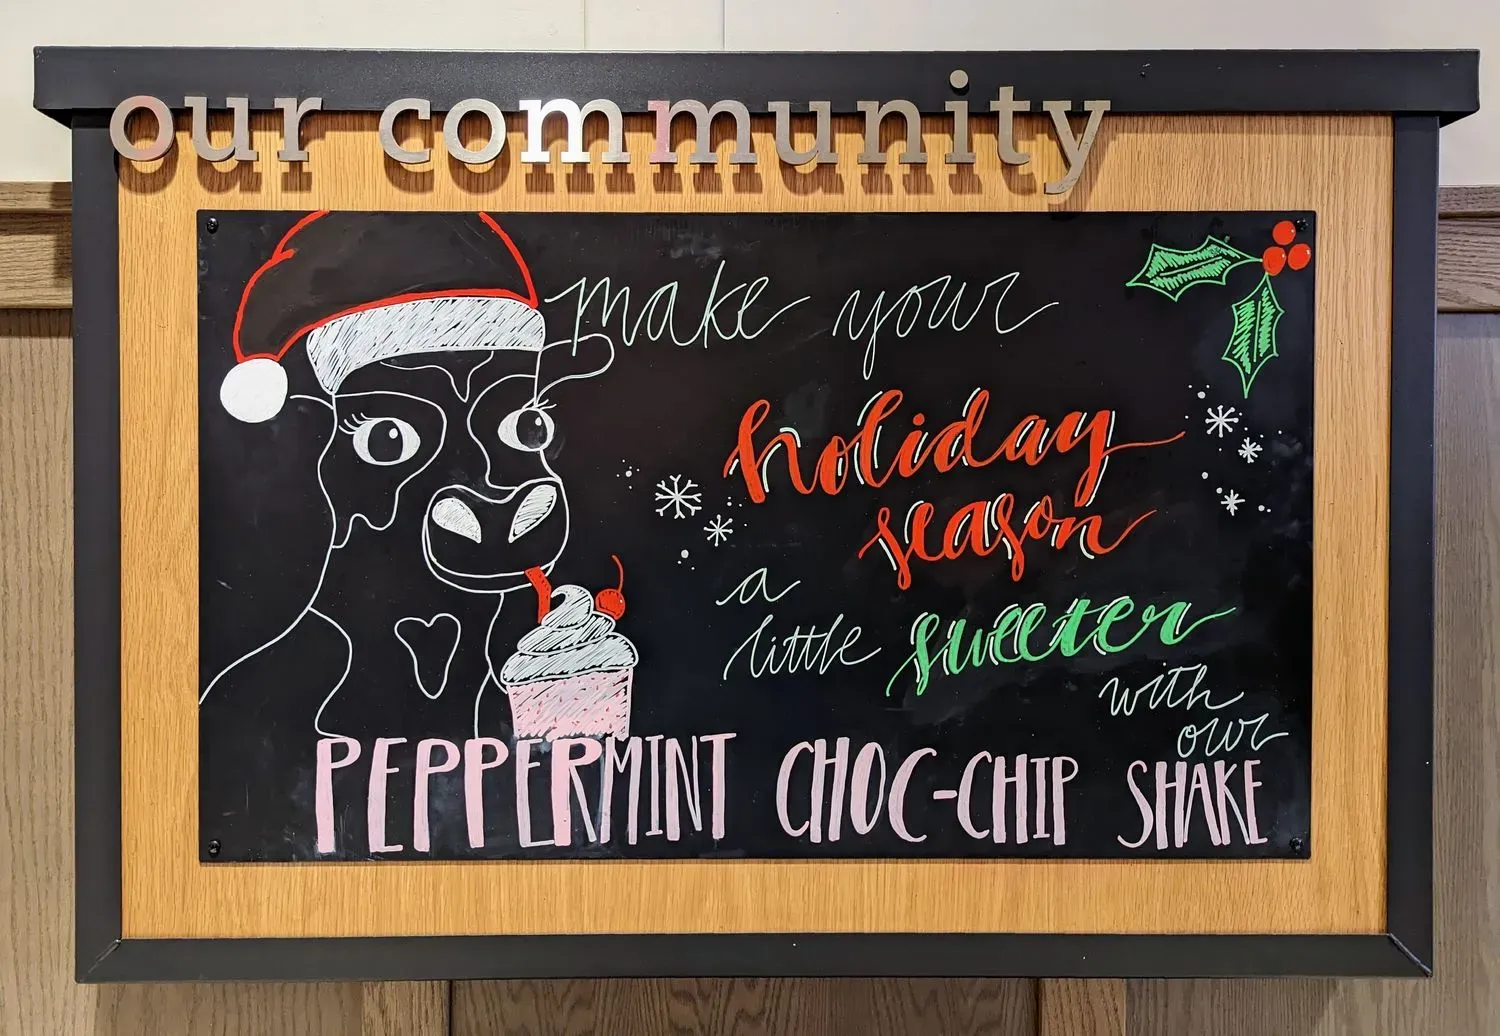 our community
make your
holiday
season
a
little sweeter
with
our
PEPPERMINT CHOC-CHIP SHAKE